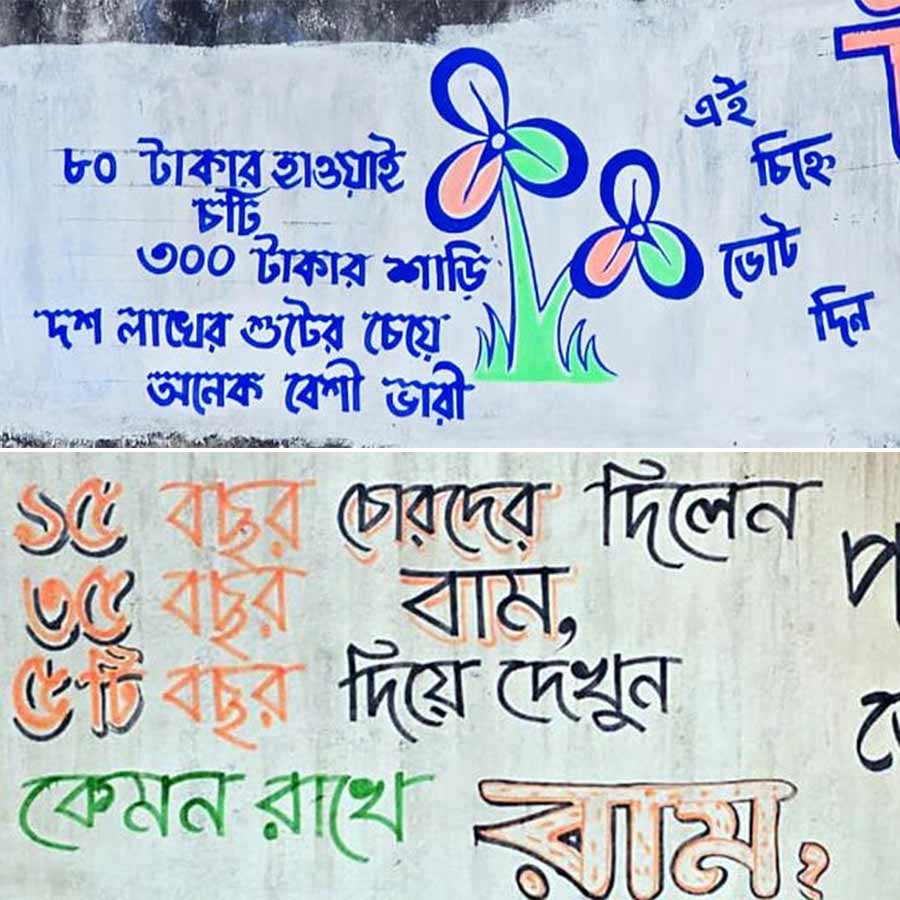 ৮০ টাকার হাওয়াই
চটি
৩০০ টাকার শাড়ি
দশ লাখের শুটের চেয়ে
অনেক বেশী ভারী
এই
চিহ্নে
ভোট
দিন
১৫ বছর চোরদের দিলেন
৩৫ বছর বাম,
৫টি বছর দিয়ে দেখুন
কেমন রাখে রাম,